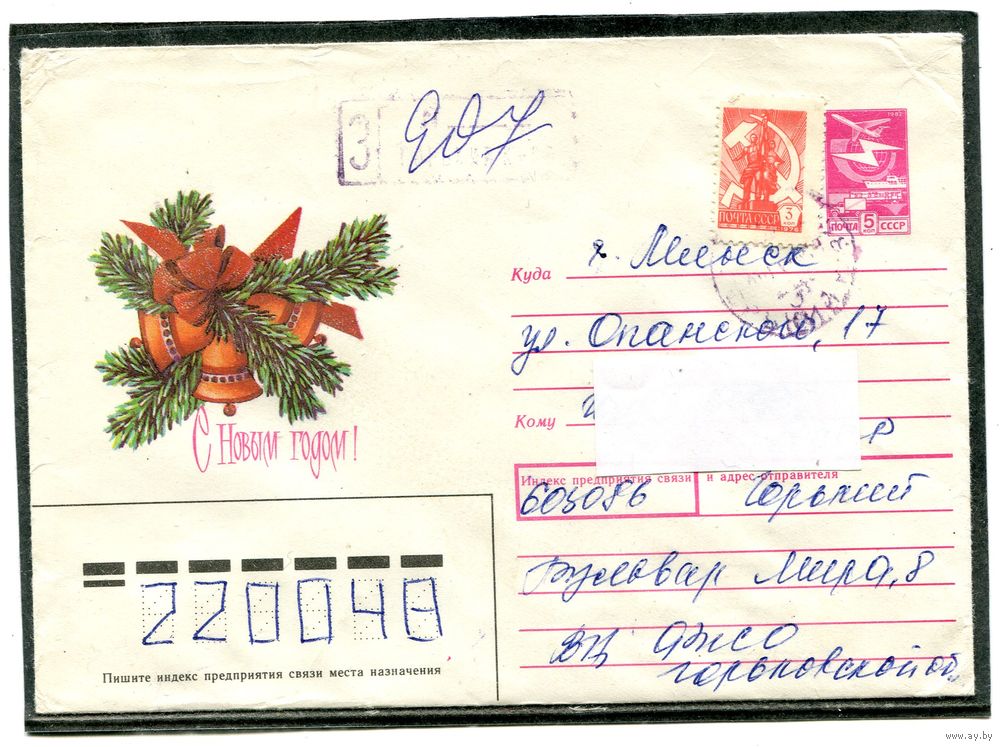 З
907
ПОЧТА СССР 3 КОП
1976
1982
ПОЧТА 5 КОП СССР
Куда г. Минск
ул. Опанского, 17
Кому
Индекс предприятия связи и адрес отправителя
603086 Горький
Бульвар Мира, 8
ВЦ
горьковской
С Новым годом!
220048
Пишите индекс предприятия связи места назначения
www.ay.by